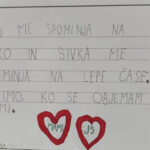 O ME SPOMINJA NA
KO IN SIVKA ME
MINJA NA LEPE ČASE.
IMO, KO SE OBJEMAM
MI.
MAMI JS